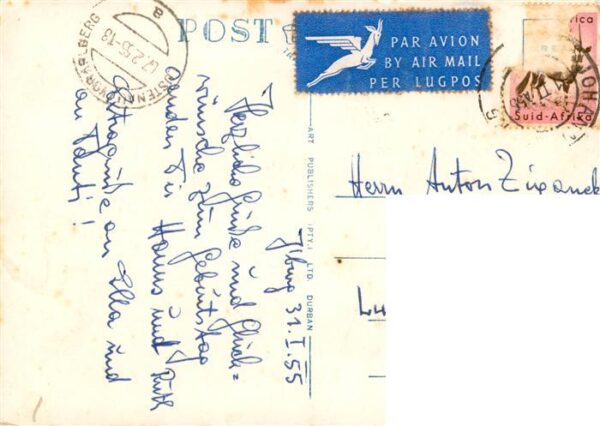 POST
PAR AVION
BY AIR MAIL
PER LUGPOS
Suid-Afrika
ART PUBLISHERS (PTY.) LTD. DURBAN
J'burg 31.I.55
Herzliche Grüße und Glück=
wünsche zum Geburtstag
senden Dir Hanns und Ruth
Extragrüße an Ella und
an Tanti!
Herrn Anton
Lu